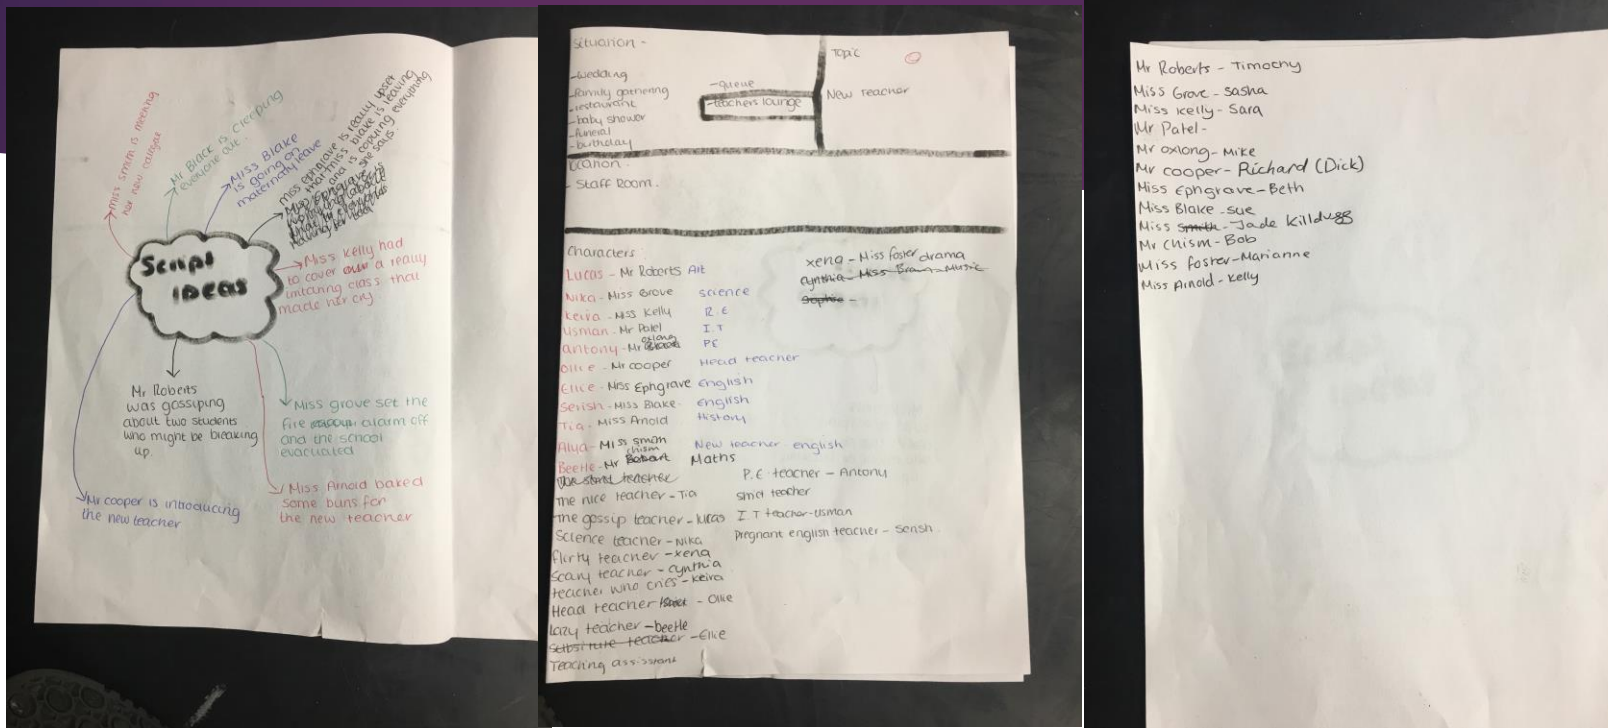 Script
IDEAS
miss smith is meeting
her new collegue
Mr Black is creeping
everyone out.
Miss Blake
is going on
maternaty leave
miss ephgrave is really upset
that miss blake is leaving
and is copying everything
she says.
Miss Kelly had
to cover a really
untaring class that
made her cry
Miss grove set the
fire alarm off
and the school
evacuated
Miss Arnold baked
some buns for
the new teacher
Mr Roberts
was gossiping
about two students
who might be breaking
up.
Mr cooper is introducing
the new teacher
Situation -
-wedding
-family gathering
-restaurant
-baby shower
-funeral
-birthday
-queue
-teachers lounge
Topic
New teacher
Location -
- Staff Room.
Characters:
Lucas - Mr Roberts Art
Nika - Miss Grove science
Keira - Miss Kelly R.E
usman - Mr Patel I.T
Antony - Mr oxlong PE
Ollie - Mr cooper Head teacher
Ellie - Miss Ephgrave English
Serish - Miss Blake - English
Tia - Miss Arnold History
Alya - Miss smith New teacher english
Beetle - Mr chism Maths
xena - Miss foster drama
cynthia - Miss Music
Sophie -
The strict teacher
The nice teacher - Tia
The gossip teacher - lucas
Science teacher - Nika
flirty teacher - xena
Scary teacher - cynthia
teacher who cries - keira
Head teacher - Ollie
Lazy teacher - beetle
Substitute teacher - Ellie
Teaching assistant
P.E teacher - Antony
strict teacher
I.T teacher - usman
Pregnant english teacher - Serish.
Mr Roberts - Timothy
Miss Grove - Sasha
Miss Kelly - Sara
Mr Patel -
Mr oxlong - Mike
Mr cooper - Richard (Dick)
Miss Ephgrave - Beth
Miss Blake - sue
Miss smith - Jade Killdugg
Mr Chism - Bob
Miss foster - Marianne
Miss Arnold - Kelly